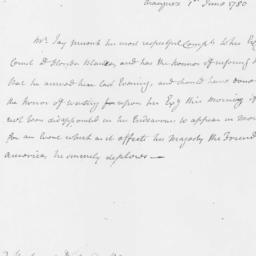 Aranjues 1st June 1780
Mr. Jay presents his most respectful Compts to his Ex
Count D Florida Blanca and has the honor of informing
that he arrived here last Evening, and should have done
the honor of waiting upon his Exy this morning
not been disappointed in his Endeavours to appear in Mo
for an Event which as it affects his Majesty the Friend
America, he sincerely deplores —